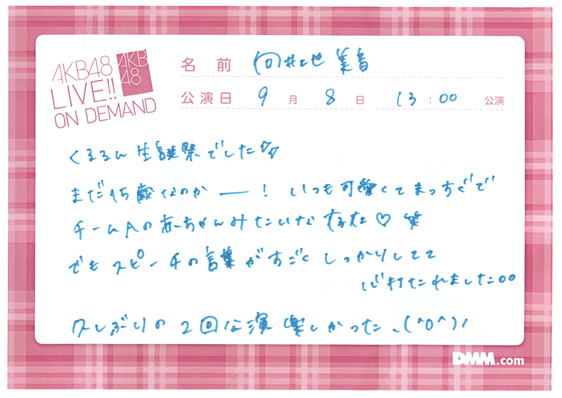 AKB48
LIVE!!
ON DEMAND
AKB
48
名前 向井地 美音
公演日 9月8日 13:00 公演
くるるん 生誕祭でした☆☆
まだ15歳なのかー! いつも可愛くてまっすぐで
チームAの赤ちゃんみたいな存在♡ 笑
でも スピーチの言葉がすごく しっかりしてて
心打たれました。。
久しぶりの 2回公演 楽しかった、(^o^)ノ
DMM.com